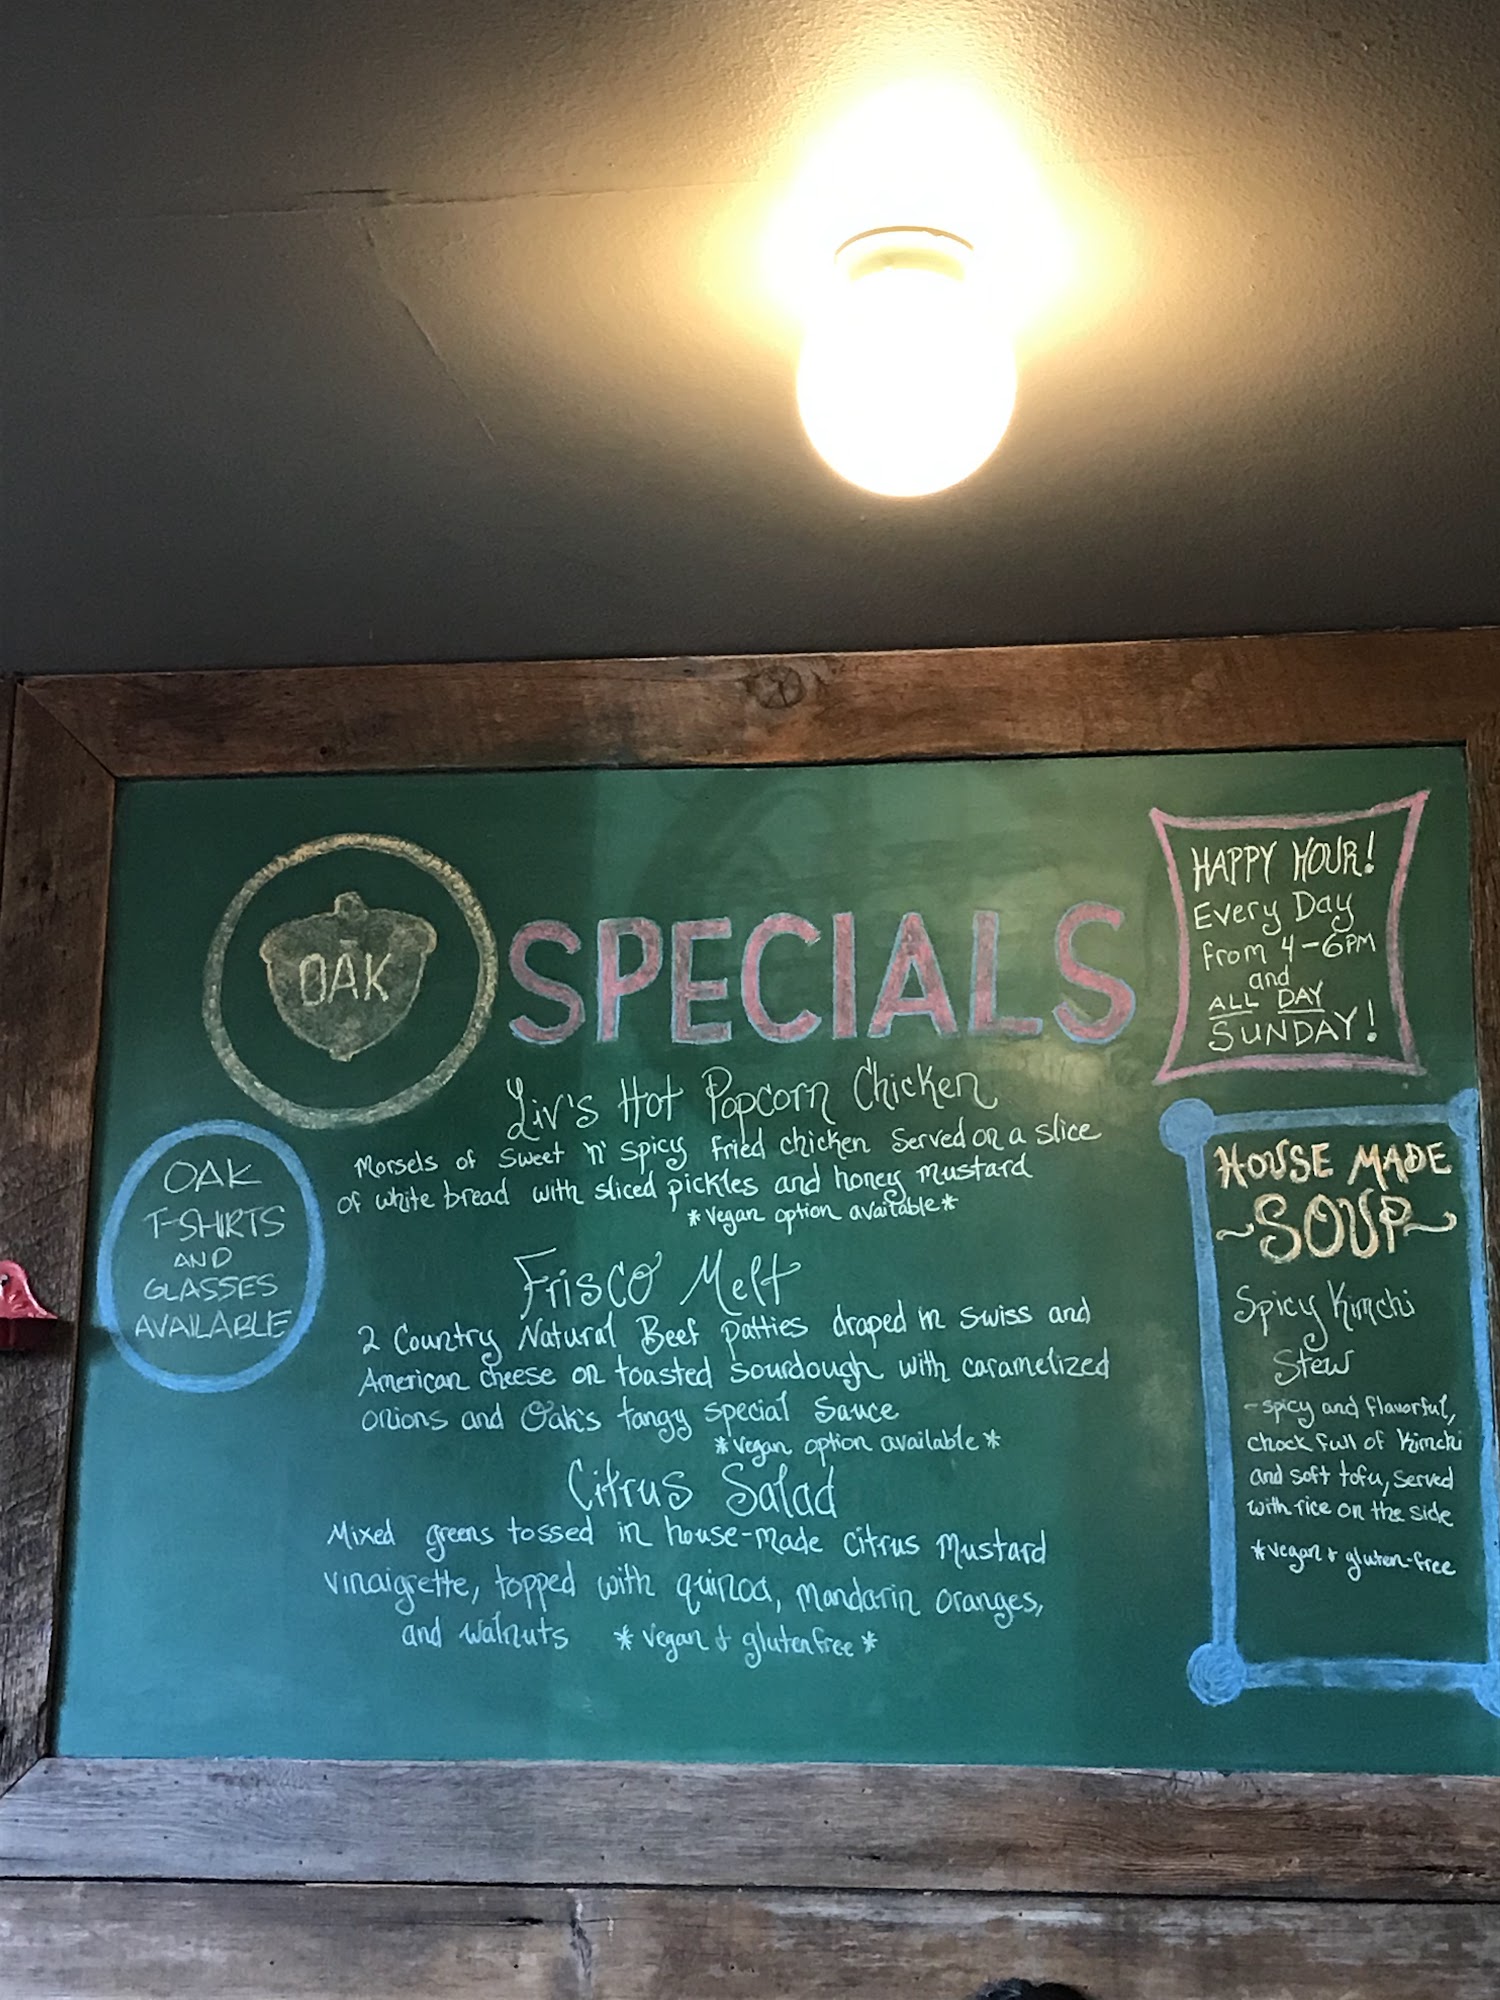 OAK
SPECIALS
HAPPY HOUR!
Every Day
from 4-6PM
and
ALL DAY
SUNDAY!
Liv's Hot Popcorn Chicken
Morsels of sweet 'n' spicy fried chicken served on a slice
of white bread with sliced pickles and honey mustard
*vegan option available*
Frisco Melt
2 Country Natural Beef patties draped in swiss and
American cheese on toasted sourdough with caramelized
onions and Oak's tangy special sauce
*vegan option available*
Citrus Salad
Mixed greens tossed in house-made citrus mustard
vinaigrette, topped with quinoa, mandarin oranges,
and walnuts *vegan + gluten free*
OAK
T-SHIRTS
AND
GLASSES
AVAILABLE
HOUSE MADE
~SOUP~
Spicy Kimchi
Stew
-spicy and flavorful,
chock full of kimchi
and soft tofu, served
with rice on the side
*vegan + gluten-free